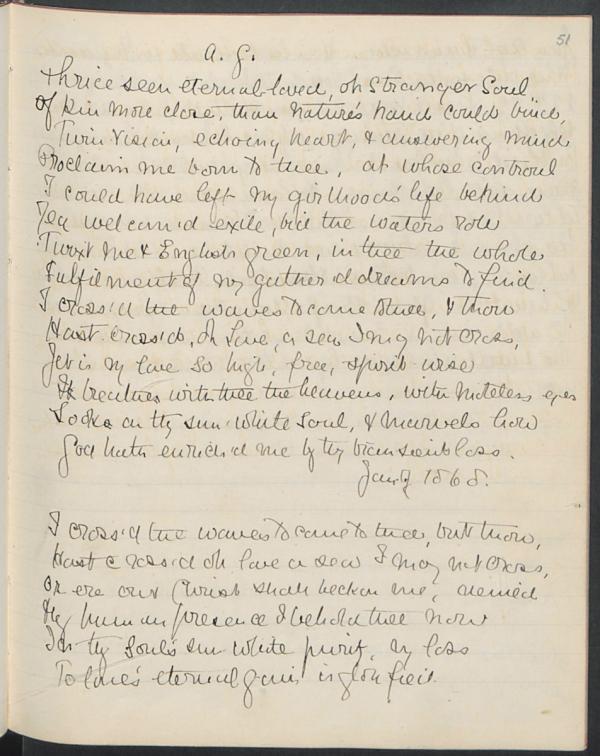 51
A. G.
Thrice seen eternal-loved, oh Stranger Soul
Of kin more close, than nature's hand could bind,
Twin vision, echoing heart, & answering mind
Proclaim me born to thee, at whose controul
I could have left my girlhood's life behind
Yea welcom'd exile, bid the waters role
'Twixt me & English green, in thee the whole
Fulfilment of my gather'd dreams to find.
I cross'd the waves to come to thee, & thou
Hast cross'd, oh Love, a sea I may not cross,
Yet is my love so high, free, spirit-wise
It breathes with thee the heavens, with moteless eyes
Looks on thy sun-white Soul, & marvels how
God hath enrich'd me by thy transient loss.
Jany 1868.
I cross'd the waves to come to thee, but thou,
Hast cross'd oh love a sea I may not cross,
Or ere our Christ shall beckon me, denied
Thy human presence I behold thee now
In thy Soul's sun-white purity, my loss
To love's eternal gain is glorified.